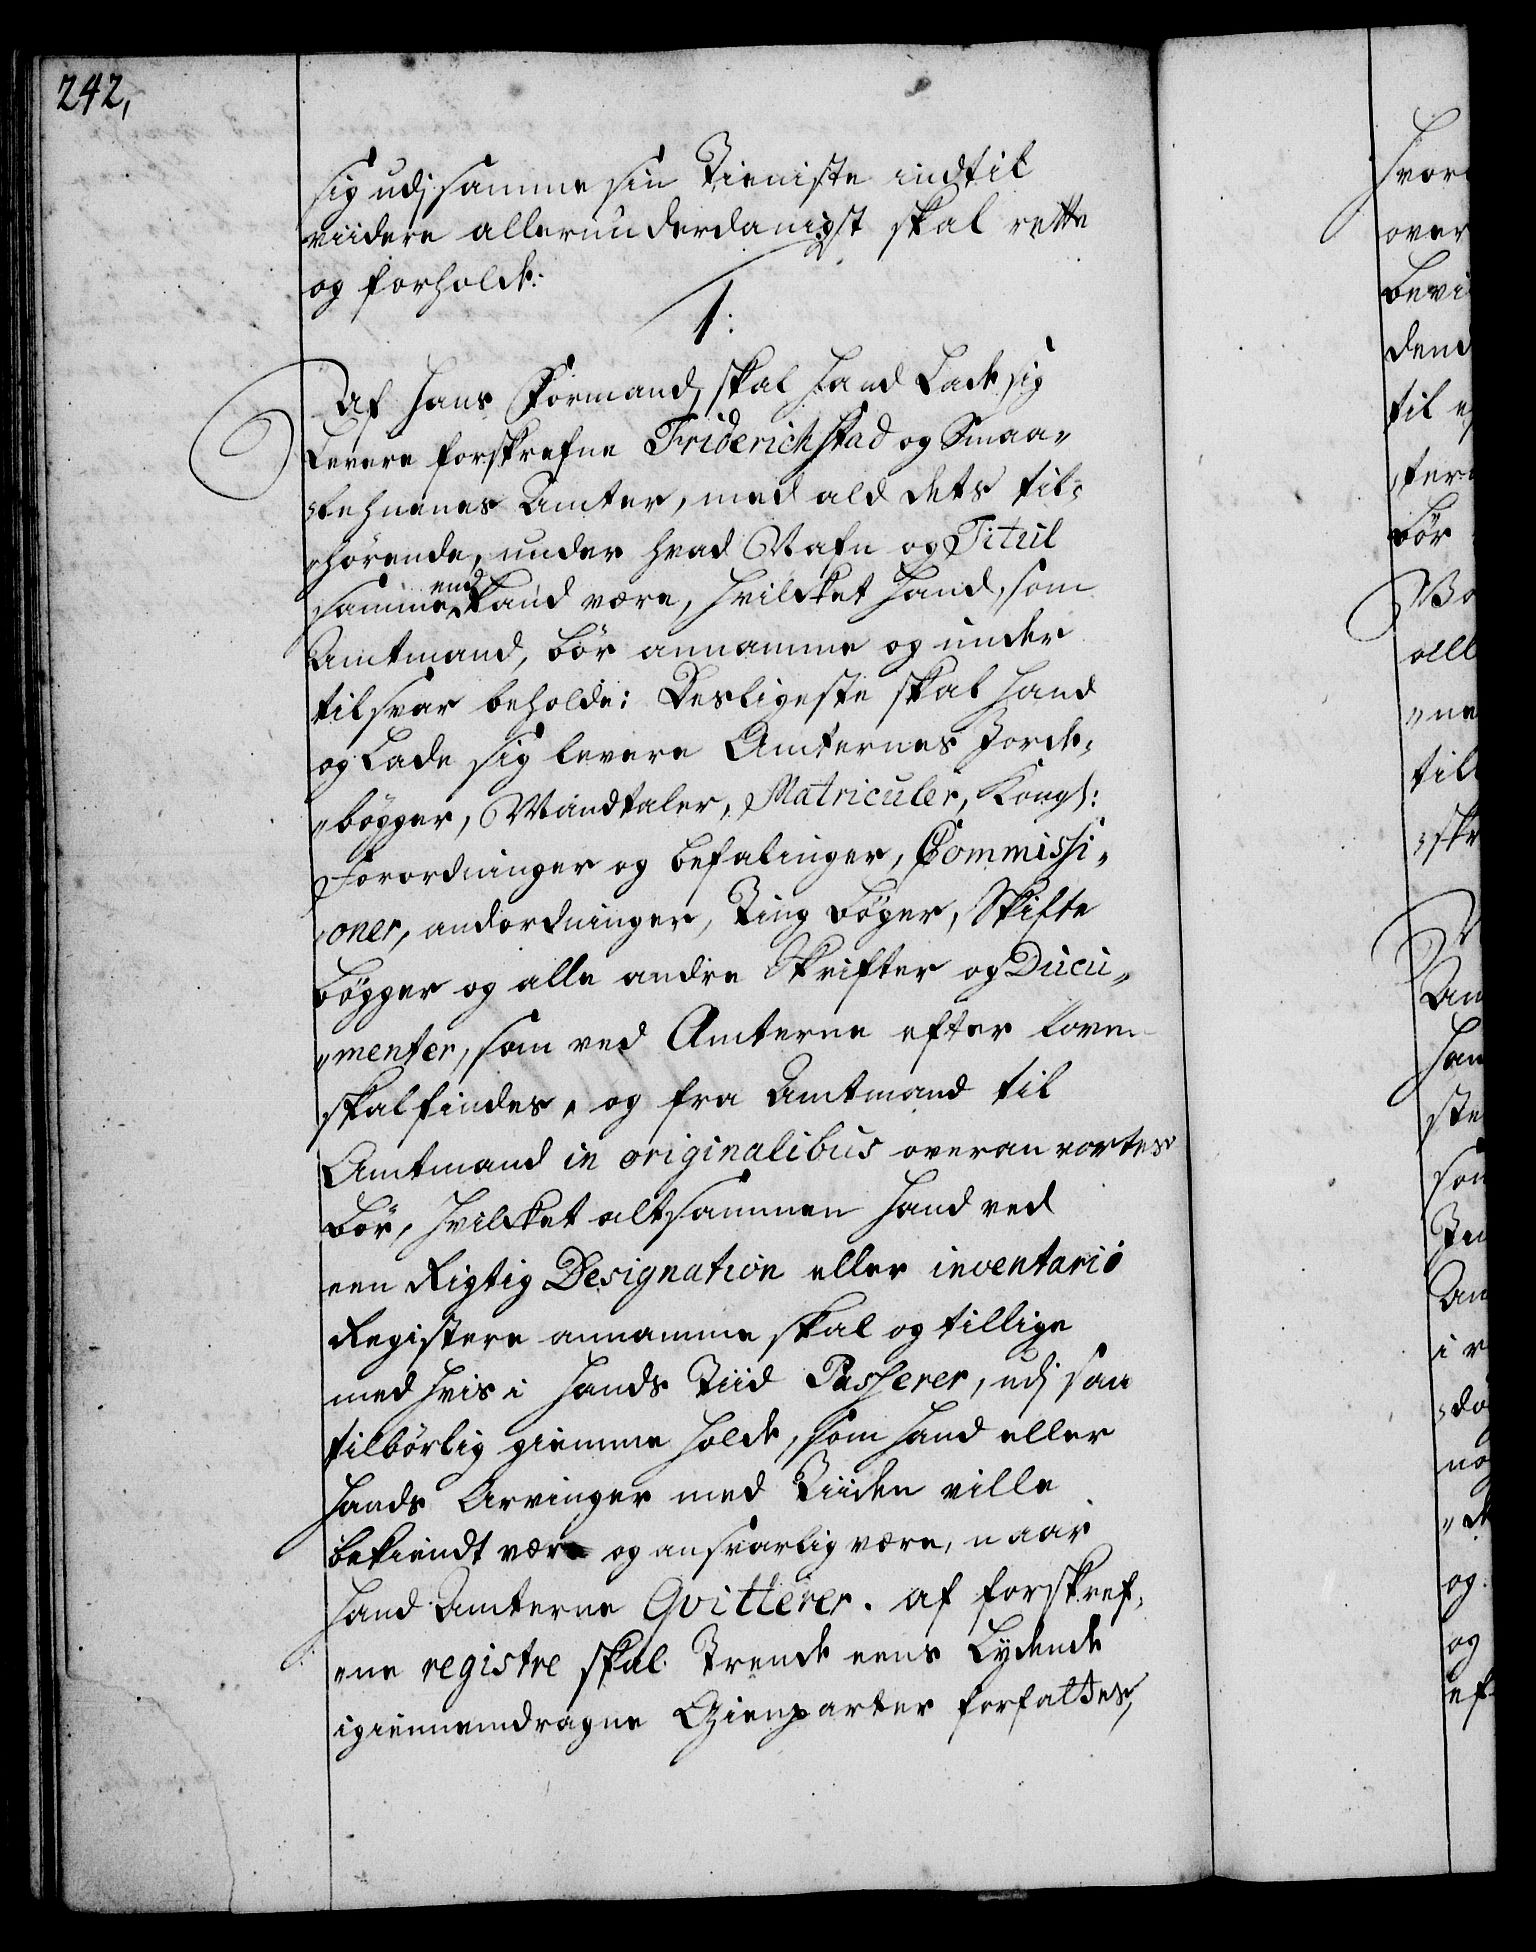 242,
sig udj samme sin Tieniste indtil
viidere allerunderdanigst skal rette
og forholde:
1.
Af Hans Formand, skal Hand Lade sig
Levere forskrefne Friderichstad og Smaa„
„lehnenes Amter, med ald dets til„
„hørende, under hvad Nafn og Titul
samme end kand være, hvilcket Hand, som
Amtmand, bør annamme og under
tilsvar beholde: Desligeste skal Hand
og Lade sig levere Amternes Jorde„
„bøgger, Mandtaler, Matriculer, Kongl:
Forordninger og befalinger, Commissi„
„oner, andordninger, Ting bøger, Skifte
bøgger og alle andre Skrifter og Ducu„
„menter, som ved Amterne efter loven
skal findes, og fra Amtmand til
Amtmand in originalibus overanvortes
bør, hvilcket altsammen Hand ved
een Rigtig Designation eller inventarii
Registere annamme skal og tillige
med hvis i Hands Tiid Passerer, udj saa
tilbørlig giemme holde, som Hand eller
Hands Arvinger med Tiiden ville
bekiendt være og ansvarlig være, naar
Hand Amterne Qvitterer. af forskref„
„ne registre skal Trende eens Lydende
igiennemdragne Gienparter forfattes,
hvor
over
bevi
den
til
bør
all
„ne
til
Am
Han
ste
som
Am
i
og
og
ef